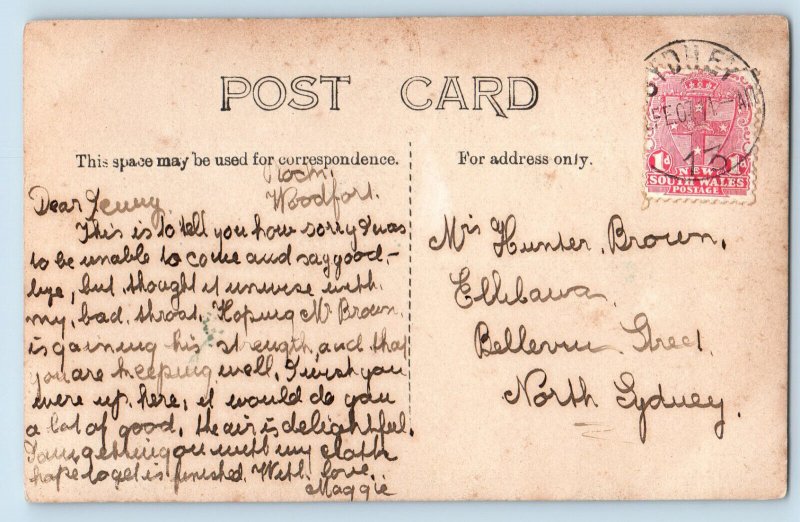 POST CARD
This space may be used for correspondence.
For address only.
Woodfort.
Dear Jenny,
This is to tell you how sorry I was
to be unable to come and say good-
bye, but thought it unwise with
my, bad, throat, Hoping Mr Brown.
is gaining his strength, and that
you are keeping well. I wish you
were up, here, it would do you
a lot of good, the air is delightful.
I am getting on with my cloth
hope to get is finished. With love.
Maggie
Mrs Hunter, Brown,
Bellevue Street
North Sydney.
SYDNEY
1d 1d
NEW
SOUTH WALES
POSTAGE